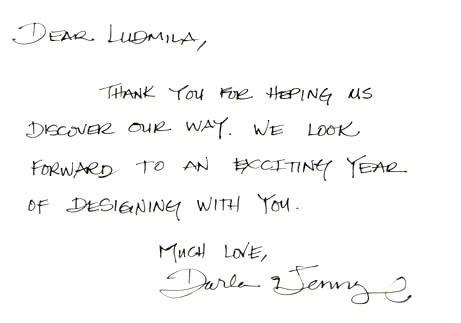 DEAR LUDMILA,
THANK YOU FOR HEPING US
DISCOVER OUR WAY. WE LOOK
FORWARD TO AN EXCITING YEAR
OF DESIGNING WITH YOU.
MUCH LOVE,
Darla & Jenny